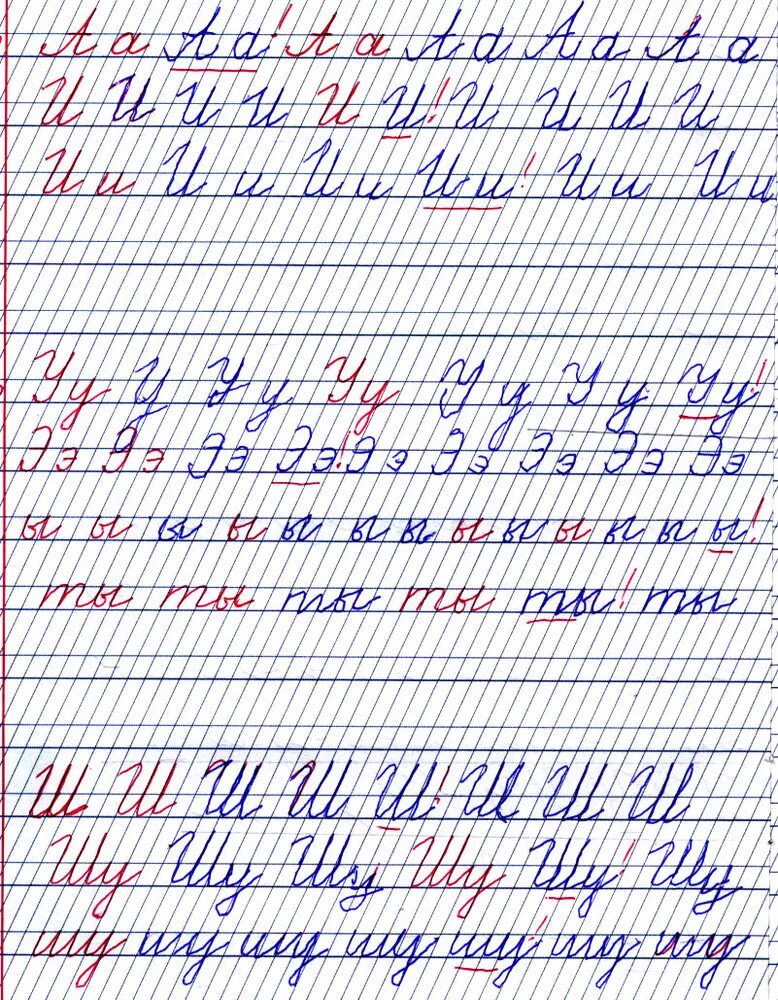 А а А а! А а А а А а А а
И И И И И И! И И И И
И и И и И и И и! И и И и
У у У У у У у У у У у У у!
Ээ Ээ Ээ Ээ! Ээ Ээ Ээ Ээ Ээ
ы ы ы ы ы ы ы ы ы ы ы ы ы!
ты ты ты ты ты! ты
Ш Ш Ш Ш Ш! Ш Ш Ш
Шу Шу Шу Шу Шу! Шу
шу шу шу шу шу! шу шу